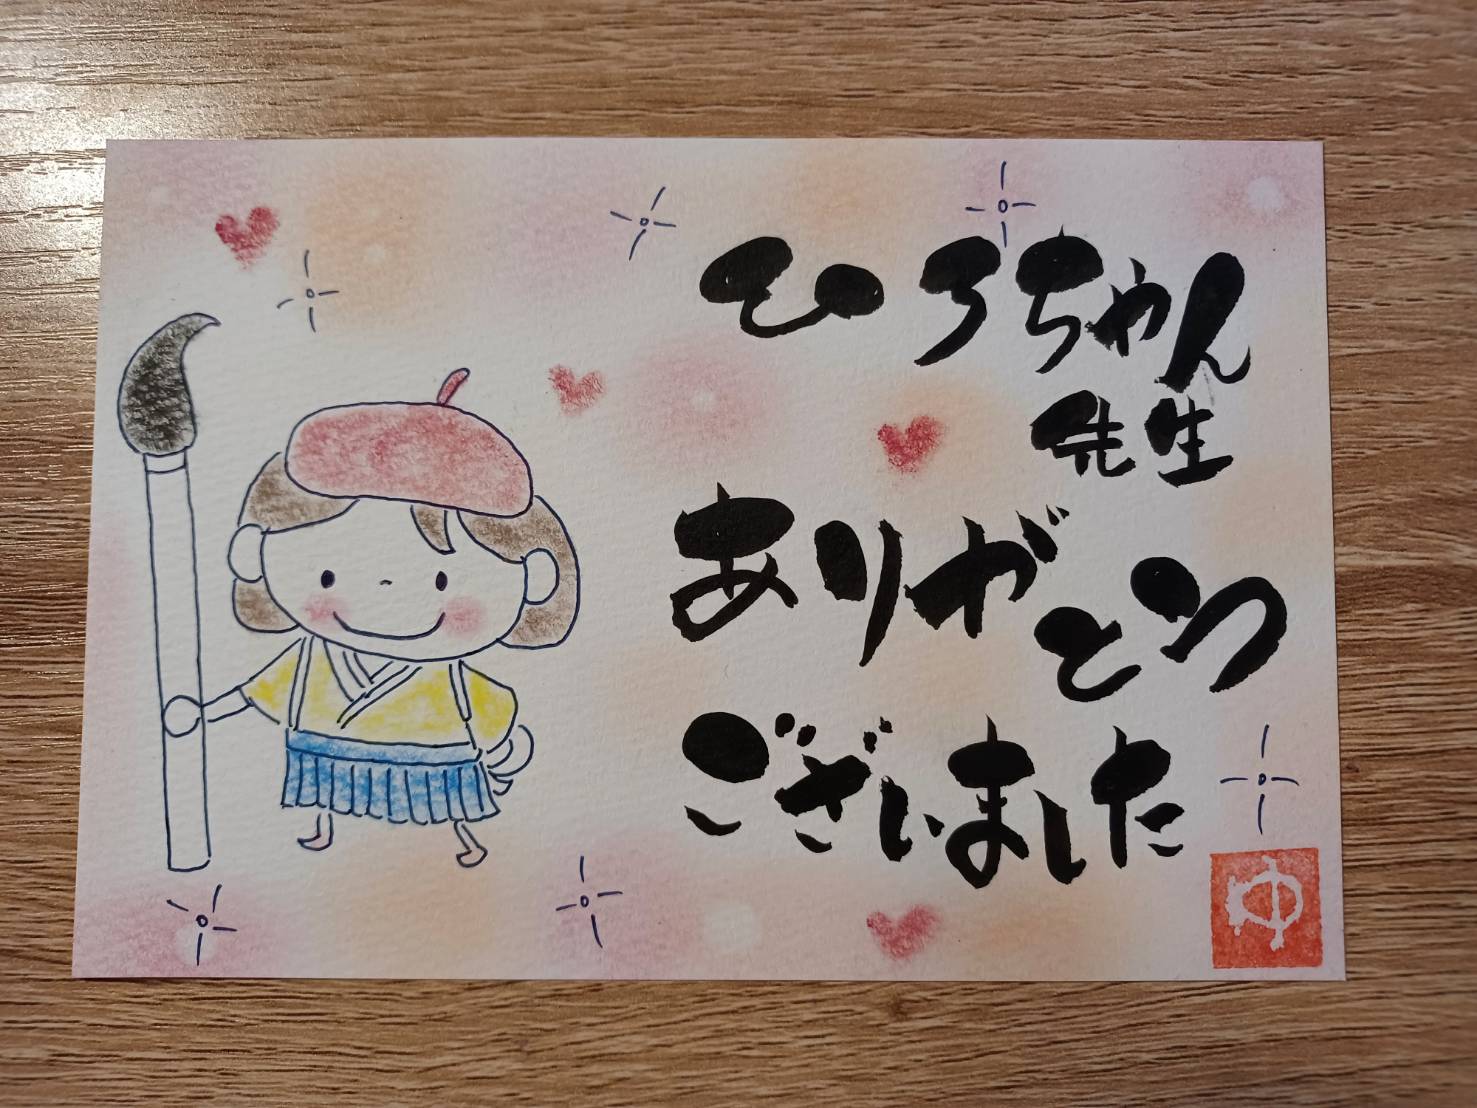 ひろちゃん
先生
ありがとう
ございました
ゆ